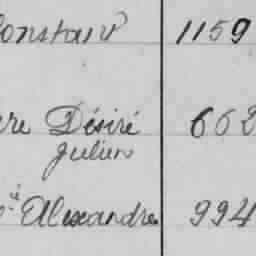 Constant 1159
re Désiré 662
Julien
Alexandre 994